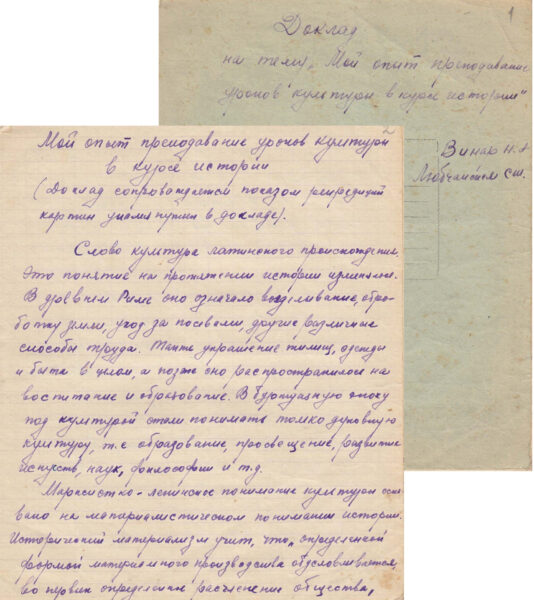 1
Доклад
на тему "Мой опыт преподавание
уроков культуры в курсе истории"
Винак Н.А
Любчанская сш.
2
Мой опыт преподавание уроков культуры
в курсе истории
(Доклад сопровождается показом репродукций
картин упомянутых в докладе).
Слово культура латинского происхождение.
Это понятие на протяжении истории изменялось.
В древнем Риме оно означало возделивание, обра-
ботку земли, уход за посевами, другие различные
способы труда. Также украшение жилищ, одежды
и быта в целом, а позже оно распространилось на
воспитание и образование. В буржуазную эпоху
под культурой стали понимать только духовную
культуру, т.е образование просвещение, развитие
искусств, наук, философии и т.д.
Марксистко-ленинское понимание культуры осно-
вано на материалистическом понимании истории.
Исторический материализм учит, что "определенной
формой материального производства обусловливается,
во первых определенное расчленение общества,